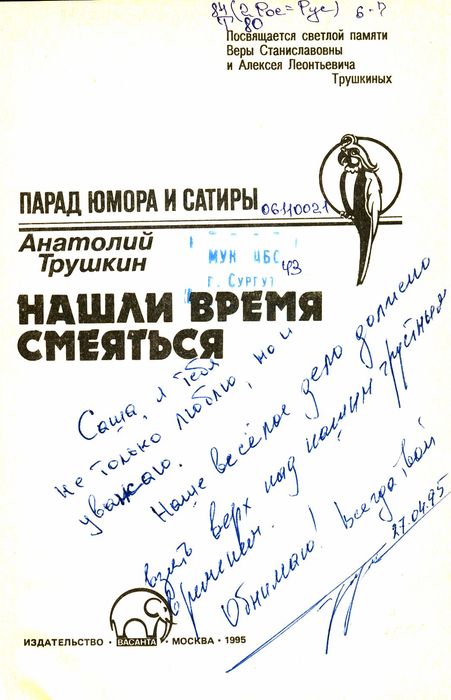 84(2Рос=Рус)6-7
Т 80
Посвящается светлой памяти
Веры Станиславовны
и Алексея Леонтьевича
Трушкиных
ПАРАД ЮМОРА И САТИРЫ
06110021
Анатолий
Трушкин
МУК ЦБС
г. Сургут
ЧЗ
НАШЛИ ВРЕМЯ
СМЕЯТЬСЯ
Саша, я тебя
не только люблю, но и
уважаю.
Наше весёлое дело должно
взять верх над нашим грустным
временем.
Обнимаю! Всегда твой
27.04.95
ИЗДАТЕЛЬСТВО · ВАСАНТА · МОСКВА · 1995